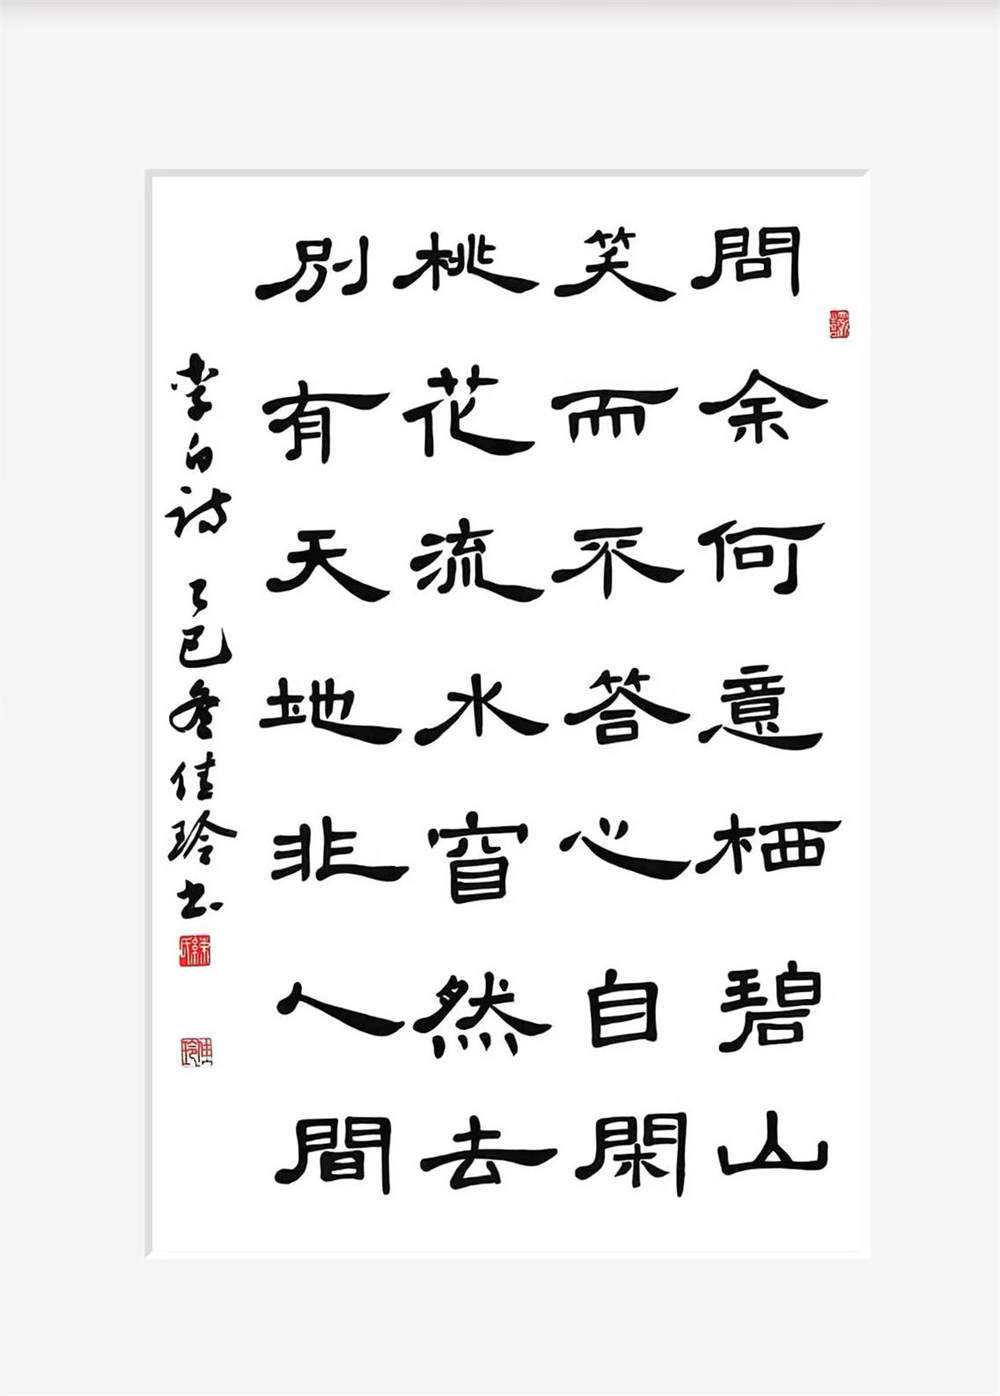 問余何意栖碧山
笑而不答心自閑
桃花流水窅然去
別有天地非人間
李白诗 乙巳冬佳玲书
佳玲